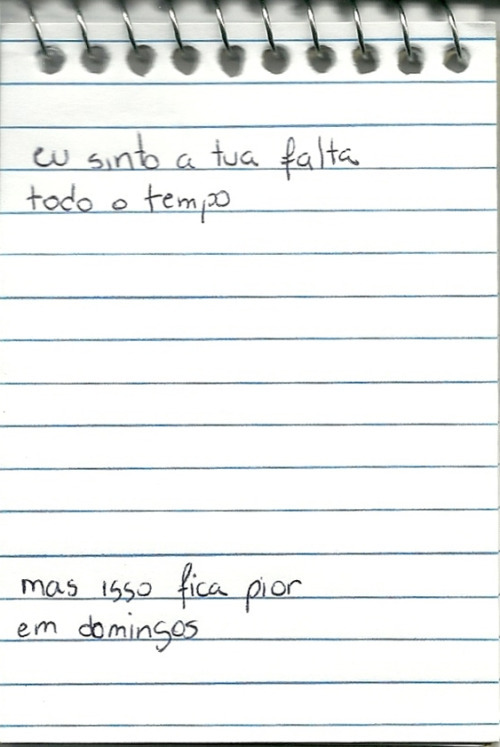 eu sinto a tua falta
todo o tempo
mas isso fica pior
em domingos